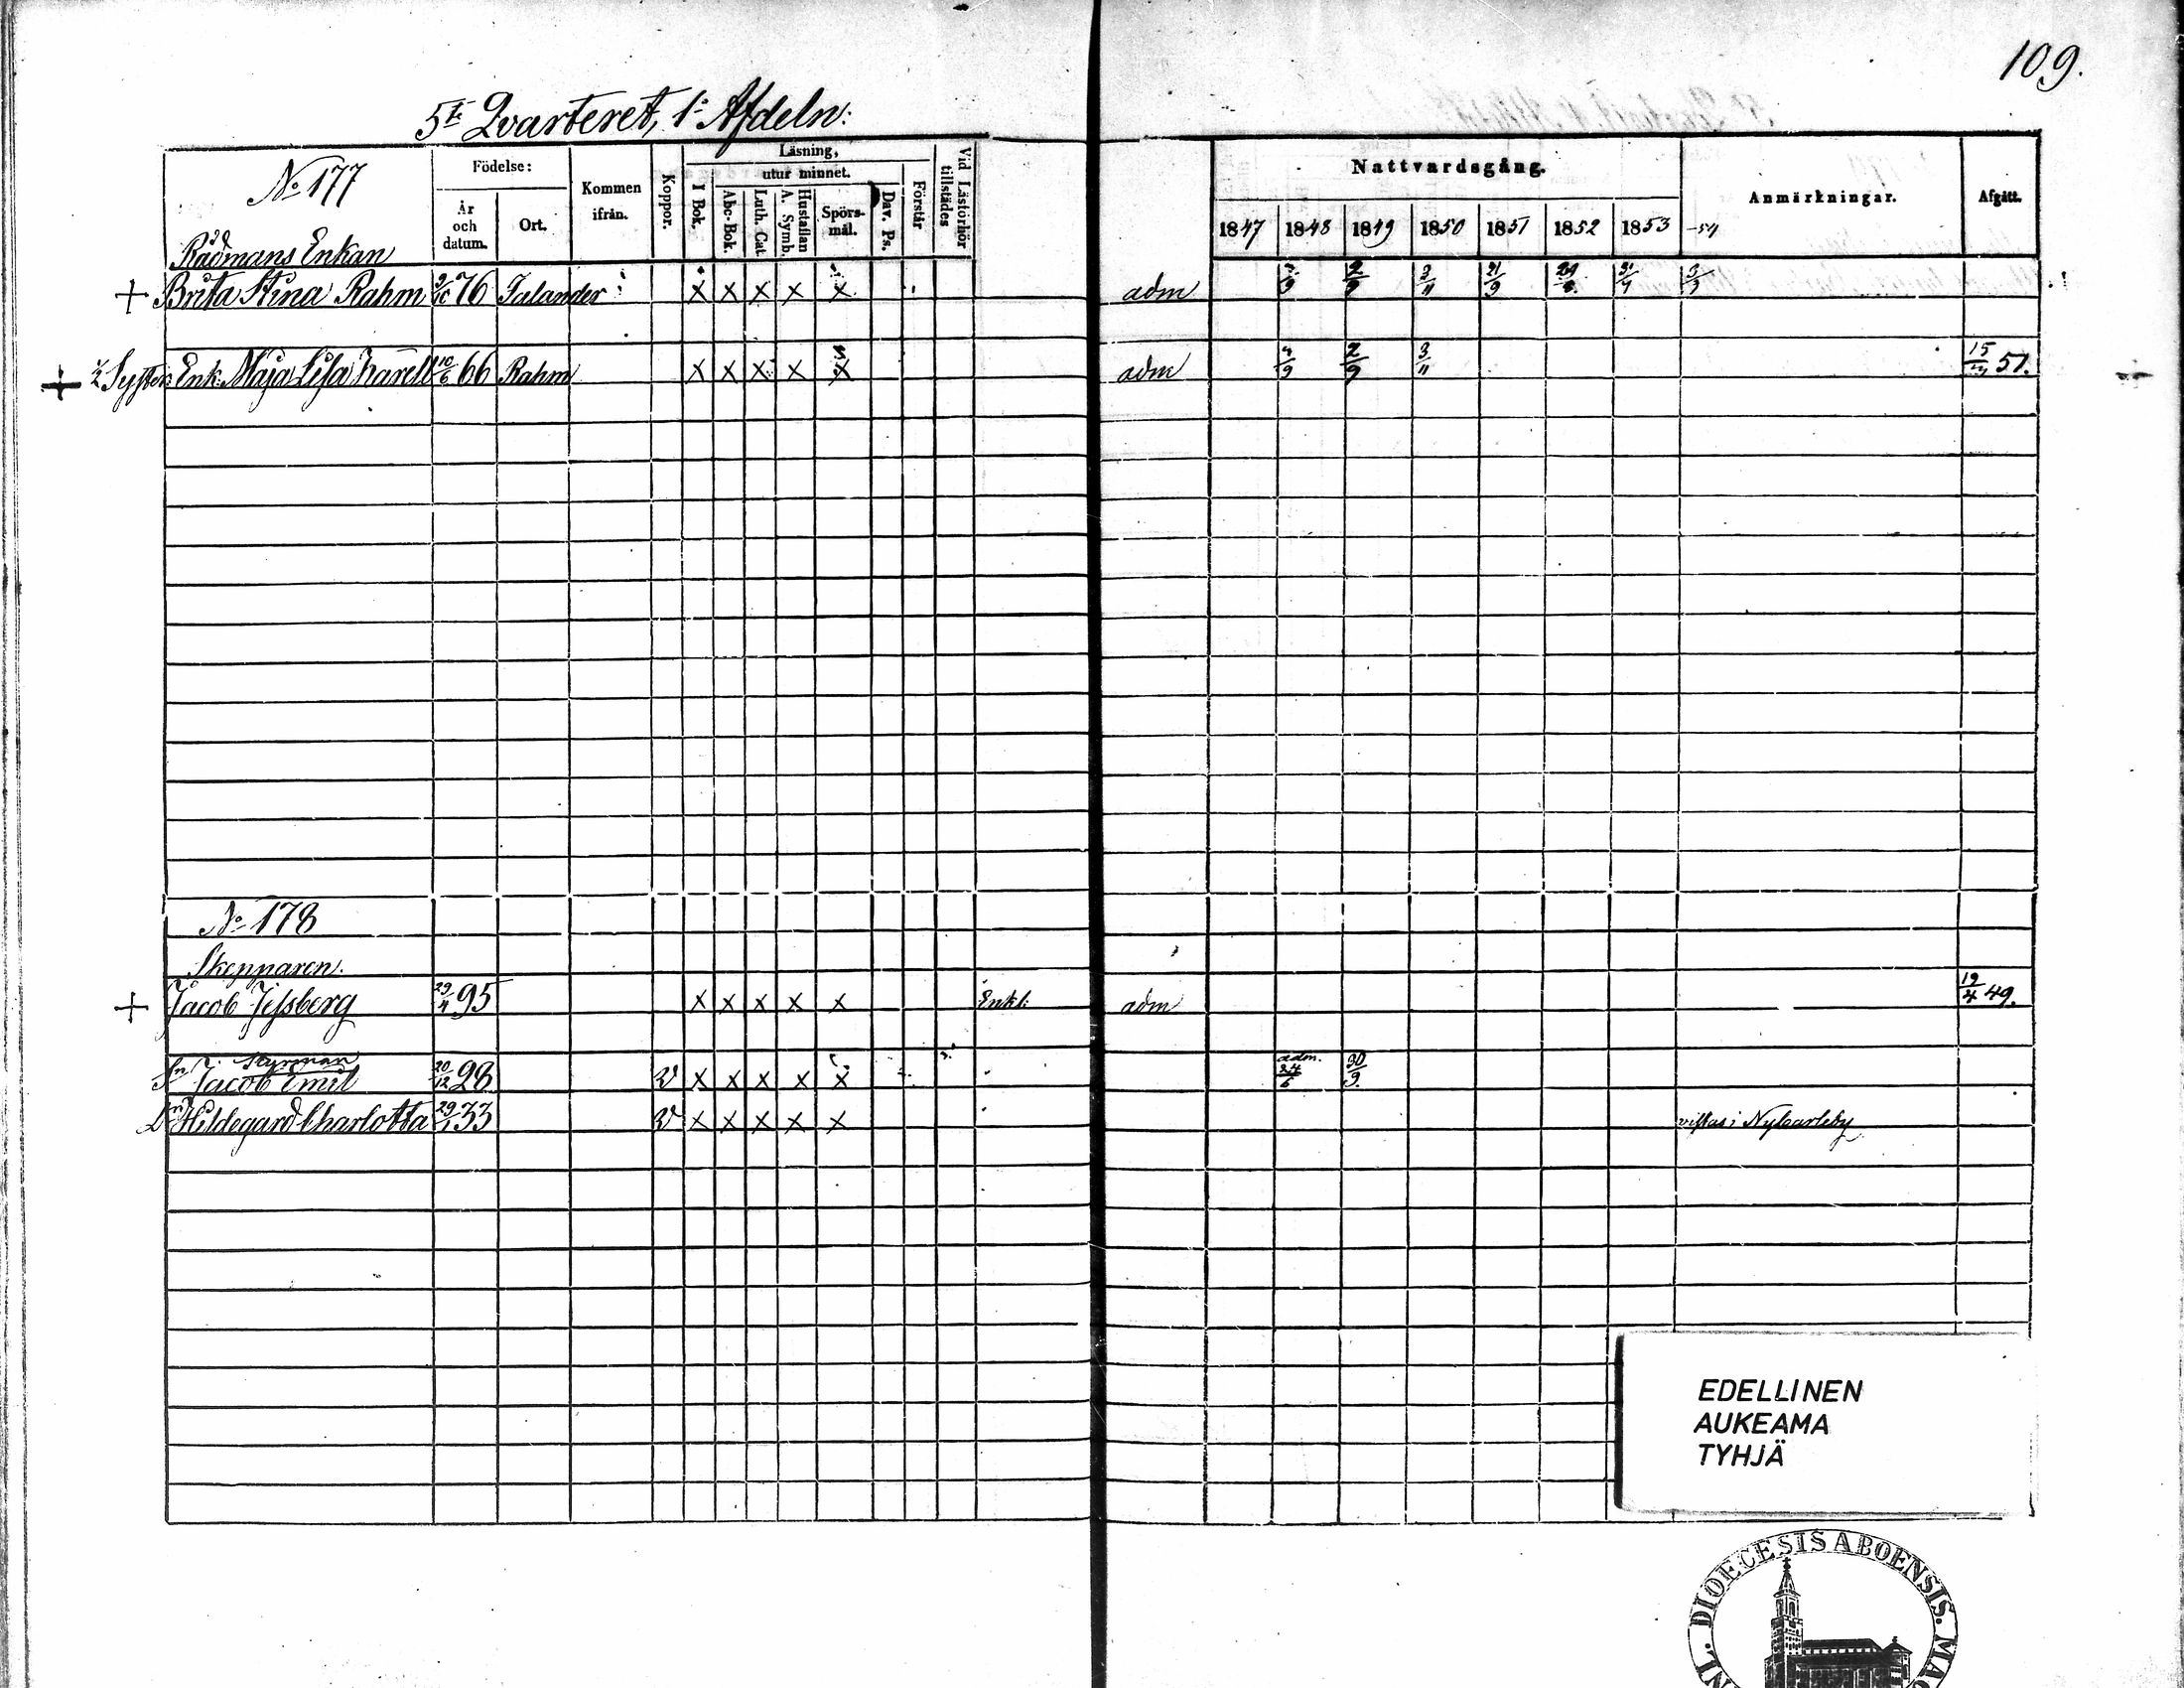 109.
5te Qvarteret, 1a Afdeln:
No 177
Födelse:
År och datum.
Ort.
Kommen ifrån.
Koppor.
Läsning,
utur minnet.
I Bok.
Abc-Bok.
Luth. Cat.
Hustaflan A. Symb.
Spörsmål.
Dav. Ps.
Förstår
Vid Läsförhör tillstädes
Nattvardsgång.
1847 1848 1849 1850 1851 1852 1853 -54
Anmärkningar.
Afgått.
Rådmans Enkan
+ Brita Stina Rahm 76 Falander x x x x x adm 2/9 3/11 21/9
+ Enk. Maja Lisa 10/6 66 Rahm x x x x x adm 4/9 2/9 3/11 51.
No 178
Skepparen.
+ Jacob Jessberg 29/4 95 x x x x x Enkl: adm 19/4 49.
Styrman
Sn Jacob Emil 20/12 28 v x x x x x adm. 24/6 30/9
Dn Hildegard Charlotta 29/1 33 v x x x x x vistas i Nycarleby
EDELLINEN
AUKEAMA
TYHJÄ
DIOECESIS ABOENSIS.